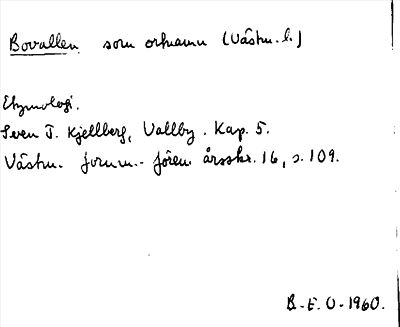 Bovallen som ortnamn (Västm. l.)
Etymologi.
Sven T. Kjellberg, Vallby. Kap. 5.
Västm. fornm.-fören. årsskr. 16, s. 109.
B.-E. O - 1960.